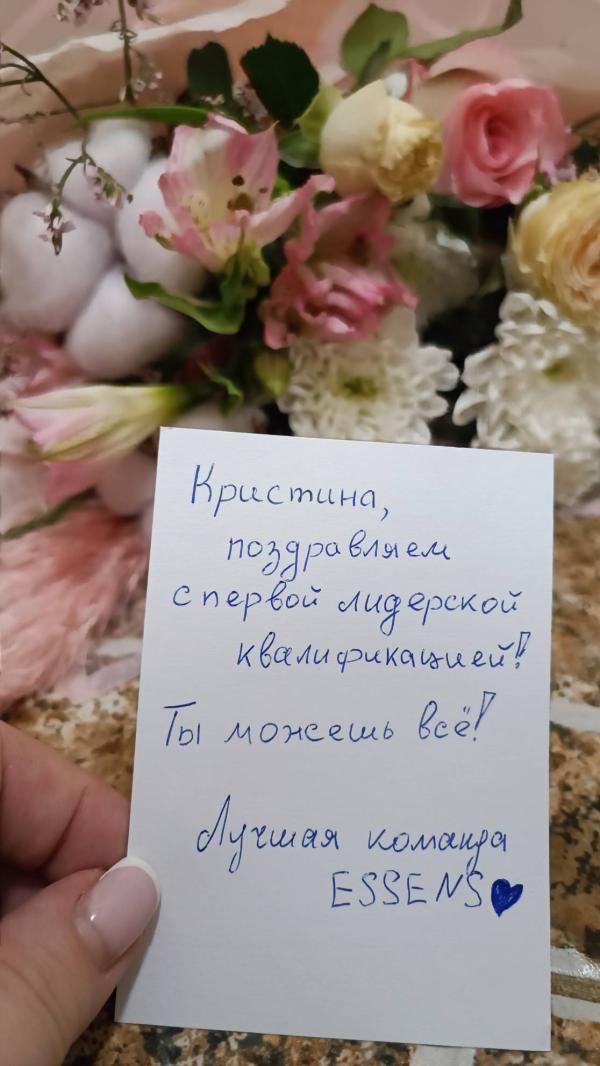 Кристина,
поздравляем
с первой лидерской
квалификацией!
Ты можешь всё!
Лучшая команда
ESSENS